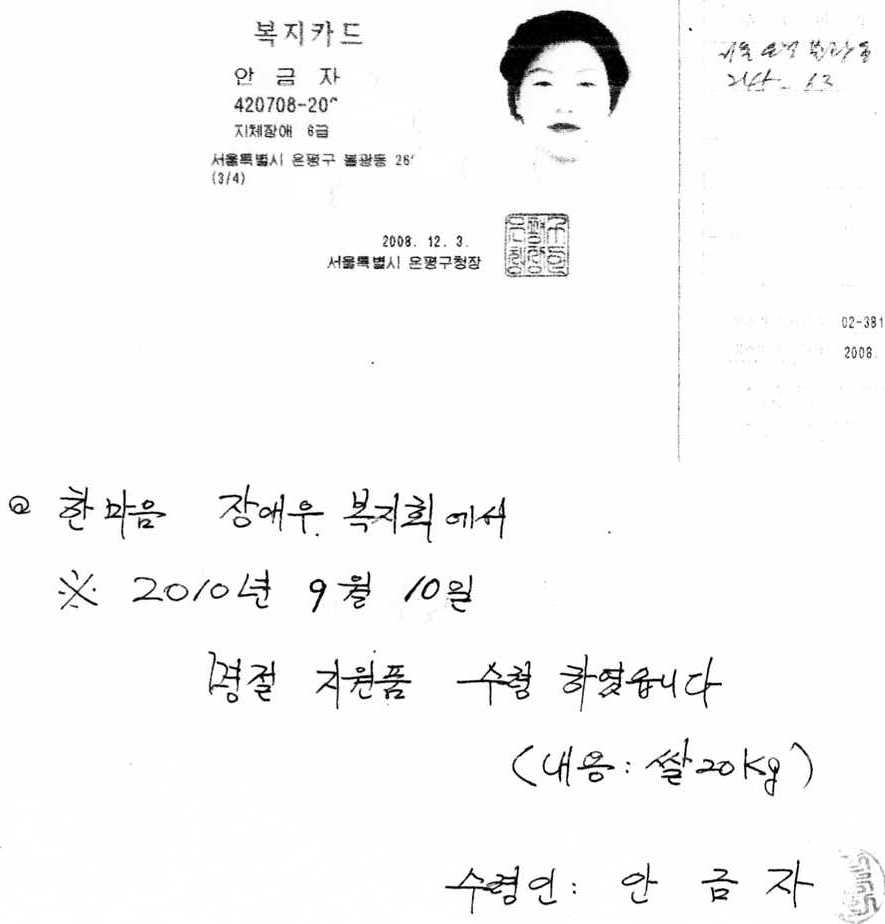 복지카드
안 금 자
420708-20
지체장애 6급
서울특별시 은평구 불광동 26
(3/4)
2008. 12. 3.
서울특별시 은평구청장
02-381
2008.
한마음 장애우 복지회에서
※ 2010년 9월 10일
명절 지원품 수령 하였읍니다
(내용: 쌀 20kg)
수령인: 안 금 자